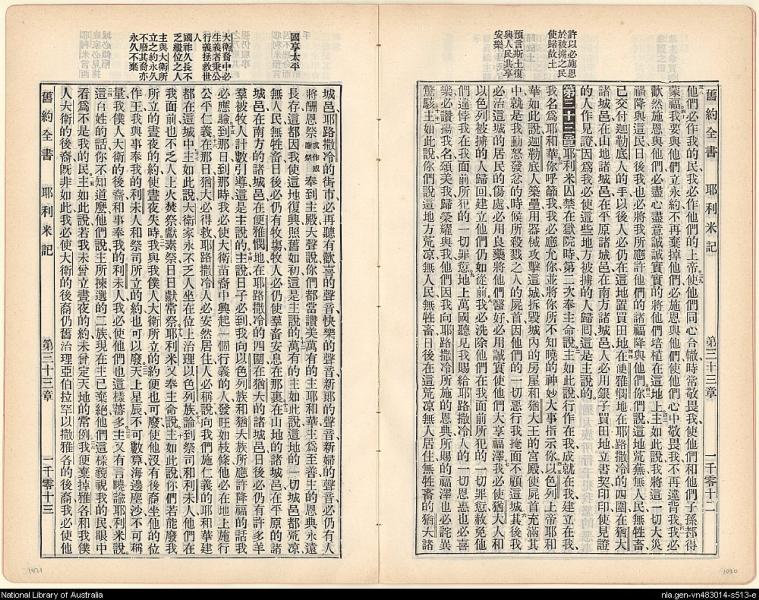 許以必施恩
於被擄之民
使歸故土
預言斯土復
與人民共享
安樂
舊約全書 耶利米記 第三十三章 一千零十二
他們必作我的民我必作他們的上帝使他們同心合轍時常敬畏我使他們和他們子孫都得
蒙福我要與他們立永約不再棄掉他們必施恩與他們使他們心中敬畏我不再違背我我必
歡然施恩與他們必盡心盡意誠誠實實的將他們培植在這地上主如此說我將這一切大災
禍降與這民日後我也必將我所應許他們的諸福降與他們你們說這地荒蕪無人民無牲畜
已交付迦勒底人的手以後人必仍在這地置買田地在便雅憫地在耶路撒冷的四圍在猶大
諸城邑在山地諸城邑在平原諸城邑在南方諸城邑人必用銀子買田地立書契印印使見證
的人作見證因為我必使這些地方被擄的人歸回這是主說的
第三十三章 耶利米囚禁在獄院時第二次奉主命說主如此說行作在我成就在我建立在我
我名為耶和華你呼籲我我必應允你並將你所不知曉的神妙大事指示你以色列上帝耶和
華如此說迦勒底人築壘用器械攻擊這城拆毀城內的房屋和猶大王的宮殿使屍首充滿其
中就是我動怒發忿的時候所殺戮之人的屍首因他們的一切惡行我掩面不顧這城其後我
必治這城的居民的傷處必用良藥將他們醫好必用誠實使他們大享福澤我必使猶大人和
以色列被擄的人歸回建立他們仍如從前我必洗除他們在我面前所犯的一切罪愆赦免他
們違悖我在我面前所犯的一切罪愆地上萬國聽見我賜給耶路撒冷人的一切恩惠也必喜
樂必讚揚我名頌美我我歸榮耀與我他們因我向耶路撒冷所施的恩典所賜的福澤也必詫異
驚駭主如此說你們說這地方荒涼無人民無牲畜日後在這荒涼無人居住無牲畜的猶大諸
國享太平
大衛裔中必
生義者秉公
行義拯救世
人
國祚久長不
乏繼位之人
主與大衛所
立之約永久
不廢其裔亦
永久不棄
城邑耶路撒冷的街市必再聽有歡喜的聲音快樂的聲音新郎的聲音新婦的聲音必仍有人
將酬恩祭奉到主殿大聲說你們都當讚美萬有的主耶和華主為至善主的恩典永遠
長存這都因我使這地復興照舊如初這是主說的萬有的主如此說這荒涼的一切城邑都荒涼
無人民無牲畜日後必仍有牧場牧人必仍使羣畜安息在那裏在山地的諸城邑在平原的諸
城邑在南方的諸城邑在便雅憫地在耶路撒冷的四圍在猶大的諸城邑日後必仍有許多羊
羣被牧人計數引導這是主說的主說的日子必到我向以色列族和猶大族所應許降福的話我
必應驗到那日到那時我必使大衛苗裔中興起一個行義的人發旺如枝條他必在地上施行
公平仁義在那日猶大必得救耶路撒冷人必安然居住人必稱說向我們施仁義的耶和華建
都在這城中主如此說大衛家永不乏人坐在位上治理以色列族論到祭司和利未人他們在
我面前也不乏人上火焚祭獻素祭日日獻常祭耶利米又奉主命說主如此說你們若能廢我
所立的晝夜的約使晝夜失時我與我僕人大衛所立的約便也可廢使他沒有後裔坐他的位
作王我與事奉我的利未人和祭司所立的約也可以廢天上星辰不可數算海邊塵沙不可稱
量我僕人大衛的後裔和事奉我的利未人我必使他們也這樣蕃多主又有言曉諭耶利米說
這百姓的話你不知道麼他們說主所揀選的二族現在主已棄絕他們這樣藐視我的民眼中
看為不是我的民主如此說若我未曾立晝夜的約未曾定天地的常例我便棄掉雅各和我僕
人大衛的後裔既非如此我必使大衛的後裔仍舊治理亞伯拉罕以撒雅各的後裔我必使他
舊約全書 耶利米記 第三十三章 一千零十三
National Library of Australia
nla.gen-vn483014-s513-e